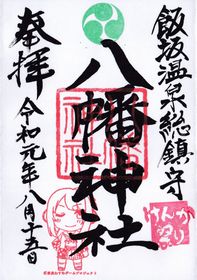 飯坂温泉総鎮守
八幡神社
奉拝
令和元年八月十五日
けんか祭り